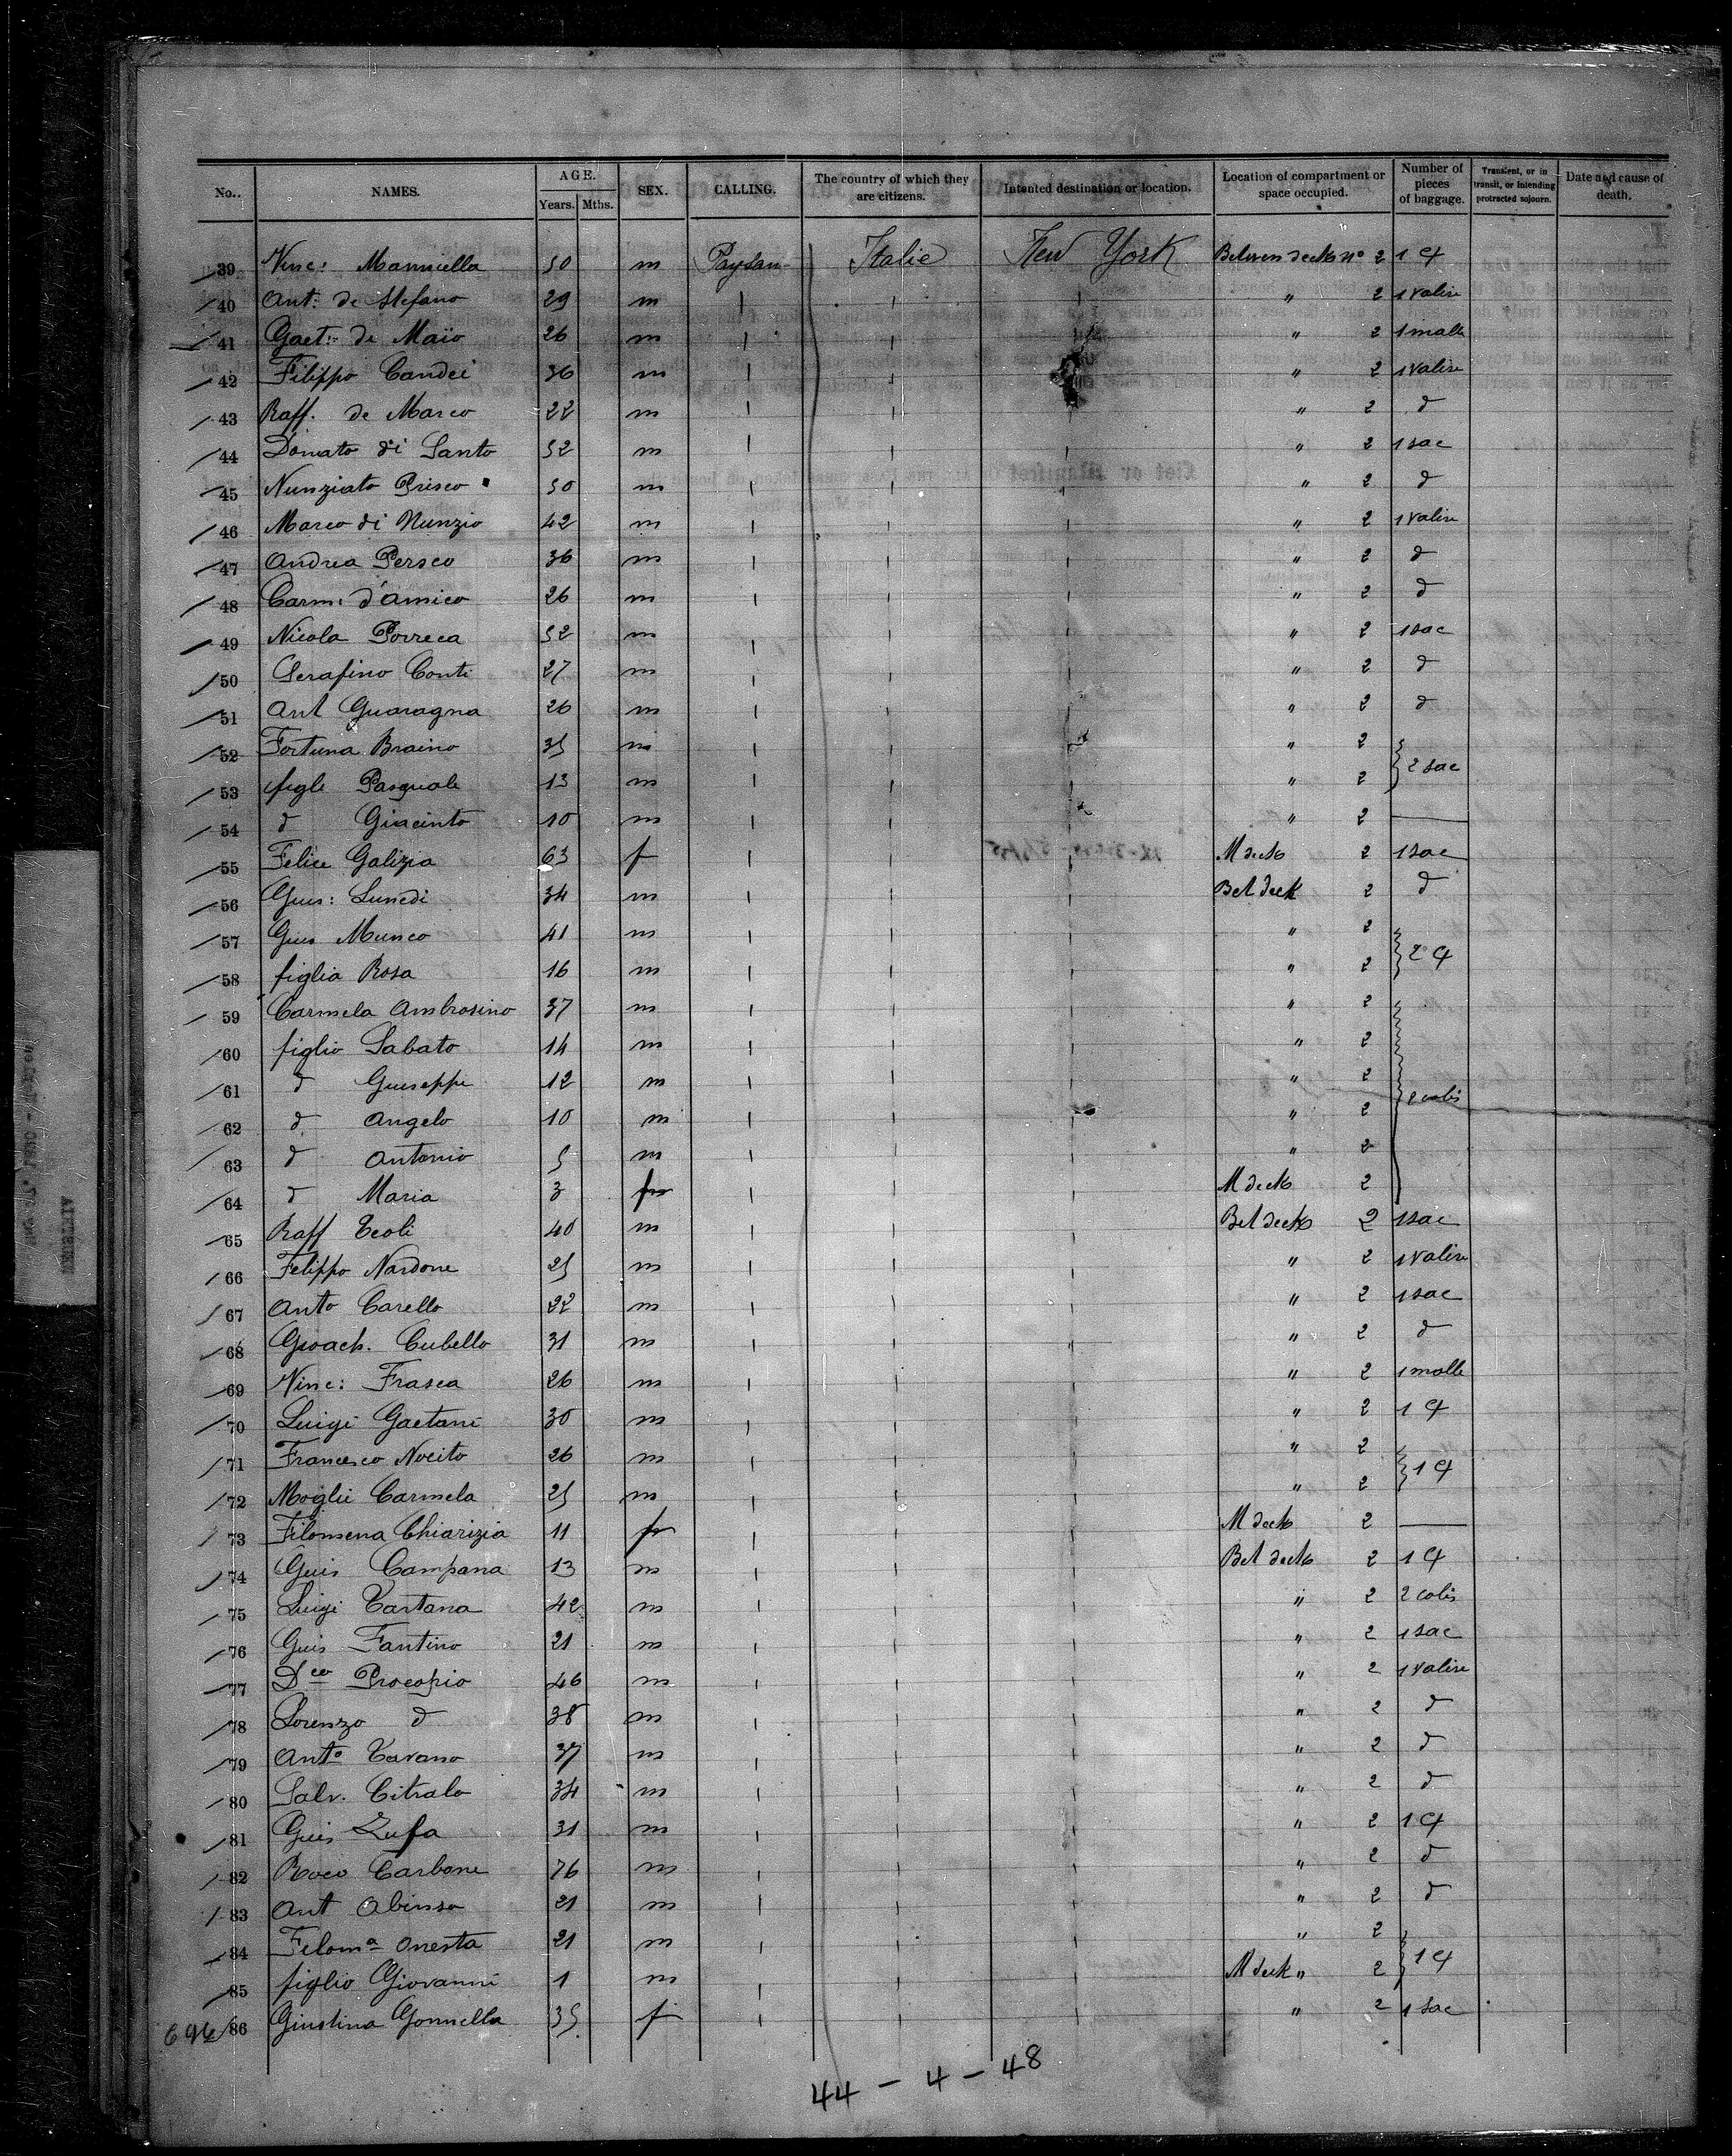 No.. NAMES. AGE. Years. Mths. SEX. CALLING. The country of which they are citizens. Intented destination or location. Location of compartment or space occupied. Number of pieces of baggage. Transient, or in transit, or intending protracted sojourn. Date and cause of death.
39 Vinc: Manniella 50 m Paysan Italie New York Between decks no 2 1
40 Ant: de Stefano 29 m " 2 1 valise
41 Gaet: de Maïo 26 m " 2 1 malle
42 Filippo Candei 36 m " 2 1 valise
43 Raff. de Marco 22 m " 2 d
44 Donato di Santo 52 m " 2 1 sac
45 Nunziato Prisco 50 m " 2 d
46 Marco di Nunzio 42 m " 2 1 valise
47 Andrea Perseo 36 m " 2 d
48 Carm: d'amico 26 m " 2 d
49 Nicola Porreca 52 m " 2 1 sac
50 Serafino Conti 27 m " 2 d
51 Ant Guaragna 26 m " 2 d
52 Fortuna Braino 35 m " 2
53 figli Pasquale 13 m " 2 2 sac
54 d Giacinto 10 m " 2
55 Felice Galizia 63 f M deck 2 1 sac
56 Gius: Lunedi 34 m Bet deck 2 d
57 Gius Munco 41 m " 2
58 figlia Rosa 16 m " 2 2
59 Carmela Ambrosino 37 m " 2
60 figlio Sabato 14 m " 2
61 d Giuseppe 12 m " 2
62 d Angelo 10 m " 2 2 colis
63 d Antonio 5 m " 2
64 d Maria 3 f M deck 2
65 Raff Teoli 40 m Bet deck 2 1 sac
66 Felippo Nardone 25 m " 2 1 valise
67 Anto Carello 22 m " 2 1 sac
68 Gioach. Cubello 31 m " 2 d
69 Vinc: Frasca 26 m " 2 1 malle
70 Luigi Gaetani 30 m " 2 1
71 Francesco Nocito 26 m " 2
72 Moglie Carmela 25 m " 2 1
73 Filomena Chiarizia 11 f M deck 2
74 Guis Campana 13 m Bet deck 2 1
75 Luigi Tartana 42 m " 2 2 colis
76 Guis Fantino 21 m " 2 1 sac
77 Dco Procopio 46 m " 2 1 valise
78 Lorenzo d 38 m " 2 d
79 Anto Tavano 37 m " 2 d
80 Salv. Citralo 34 m " 2 d
81 Guis Zufa 31 m " 2 1
82 Roco Carbone 76 m " 2 d
83 Ant Abinsa 21 m " 2 d
84 Filoma Onesta 21 m " 2
85 figlio Giovanni 1 m M deck " 2 1
86 Giustina Gonnella 35 f " 2 1 sac
44 - 4 - 48